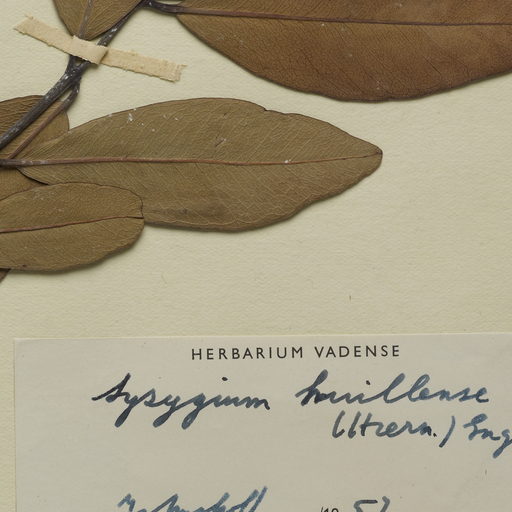 HERBARIUM VADENSE
Syzygium huillense
(Hiern.) Eng
19 57